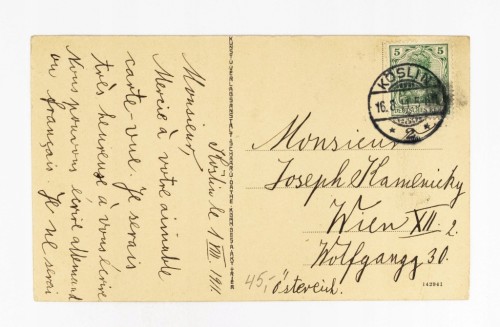 Köslin le 1 VIII. 1911.
Monsieur,
Merci à votre aimable
carte-vue. Je serais
très heureuse à vous écrire
Nous pouvons écrire allemand
ou français. Je ne serai
KÖSLIN
16.
2
5 5
Monsieur
Joseph Kamenicky
Wien XII. 2.
Wolfgangg 30.
45,- Österreich.
142961